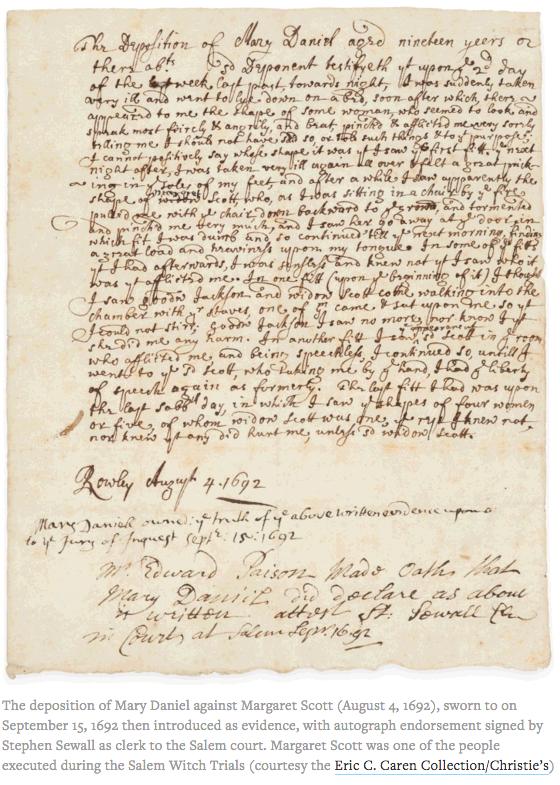 The Deposition of Mary Daniel aged nineteen years or
there abts sd Deponent testifyeth yt upon ye 2d day
of the week last past towards night, I was suddenly taken
very ill and went to lye down on a bed, soon after which, there
appeared to me the shape of some woman, who seemed to look and
speak most feircly & angrily, and beat, pinch'd & afflicted me very sorely
telling me I should not have said so, or told such things & to yt purpose.
I cannot positively say whose shape it was yt I saw ye first fitt. ye next
night after, I was taken very ill again all over & felt a great prick-
ing in ye soles of my feet, and after a while I saw apparently the
shape of Margret Scott, who, as I was sitting in a chair by ye fire
pulled me with ye chair, down backward to ye ground, and tormented
and pinch'd me very much, and I saw her go away at ye door, in
which fit I was dumb and so continued till ye next morning, finding
a great load and heaviness upon my tongue. In some of ye fitts
yt I had afterwards, I was sensless and knew not yt I saw who it
was yt afflicted me. In one fitt (upon ye beginning of it) I thought
I saw goodw Jackson, and widow Scott come walking into the
chamber with yr staves, one of ym came & sat upon me so yt
I could not stirr; Goodw Jackson I saw no more, nor know I yt
she did me any harm. In another fitt I saw ye appearance of sd Scott in ye room
who afflicted me, and being speechless, I continued so, untill I
went to ye sd Scott, who taking me by ye hand, I had ye liberty
of speech again as formerly. The last fitt I had was upon
the last sabbth day, in which I saw ye shapes of four women
or five, of whom widow Scott was one, ye rest I knew not,
nor knew yt any did hurt me, unless sd widow Scott.
Rowley August 4. 1692
Mary Daniel owned: ye truth of ye above written evidence
to ye Jury of Inquest Septr: 15: 1692
Mr. Edward Paison Made Oath that
Mary Daniel did declare as above
is written attest St. Sewall Cler
in Court at Salem Sepr. 16.92
The deposition of Mary Daniel against Margaret Scott (August 4, 1692), sworn to on
September 15, 1692 then introduced as evidence, with autograph endorsement signed by
Stephen Sewall as clerk to the Salem court. Margaret Scott was one of the people
executed during the Salem Witch Trials (courtesy the Eric C. Caren Collection/Christie's)